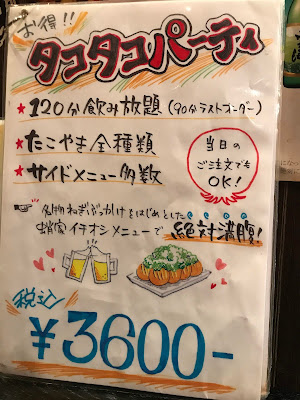 お得!!
タコタコパーティ
★120分飲み放題(90分ラストオーダー)
★たこやき全種類
★サイドメニュー多数
当日の
ご注文でも
OK!
名物ねぎぶっかけをはじめとした
蛸家イチオシメニューで絶対満腹!
税込
¥3600-